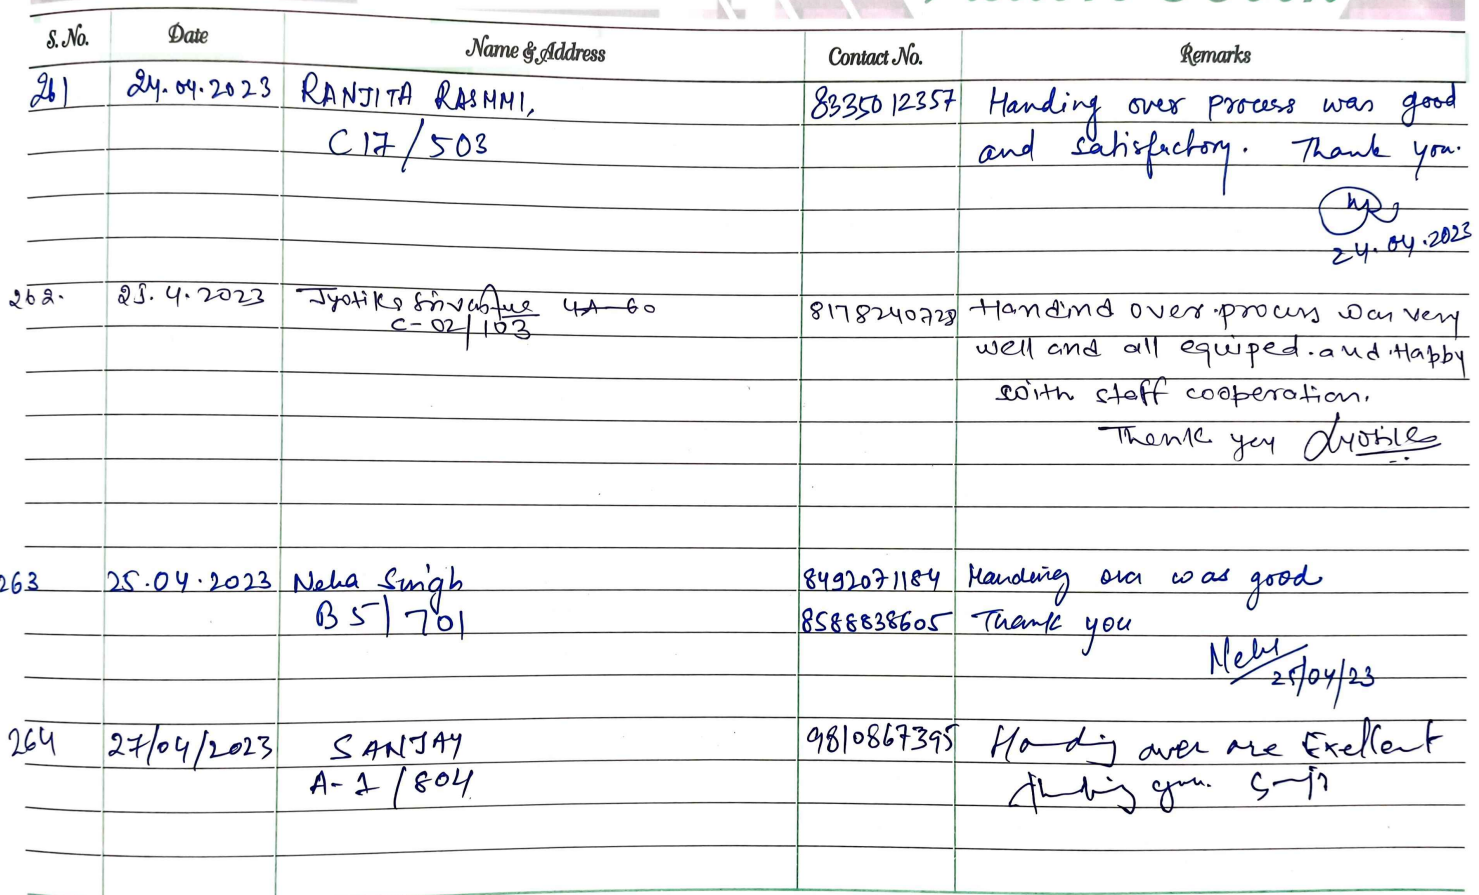 S. No. Date Name & Address Contact No. Remarks
261 24.04.2023 RANJITA RASHMI, 8335012357 Handing over process was good
C17/503 and satisfactory. Thank you.
24.04.2023
262. 25.4.2023 Jyotika Srivastue 8178240728 Handind over process was very
C-02/103 well and all equiped. and Happy
with staff cooperation.
Thank you Jyotika
263 25.04.2023 Neha Singh 8492071184 Handing over was good
B5/701 8588838605 Thank you
Neha
25/04/23
264 27/04/2023 SANJAY 9810867395 Handing over are Exellent
A-1/804 thanking you.